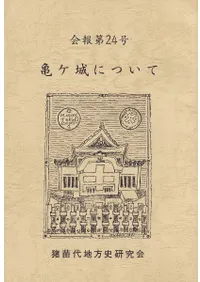 会報第24号
亀ケ城について
猪苗代地方史研究会